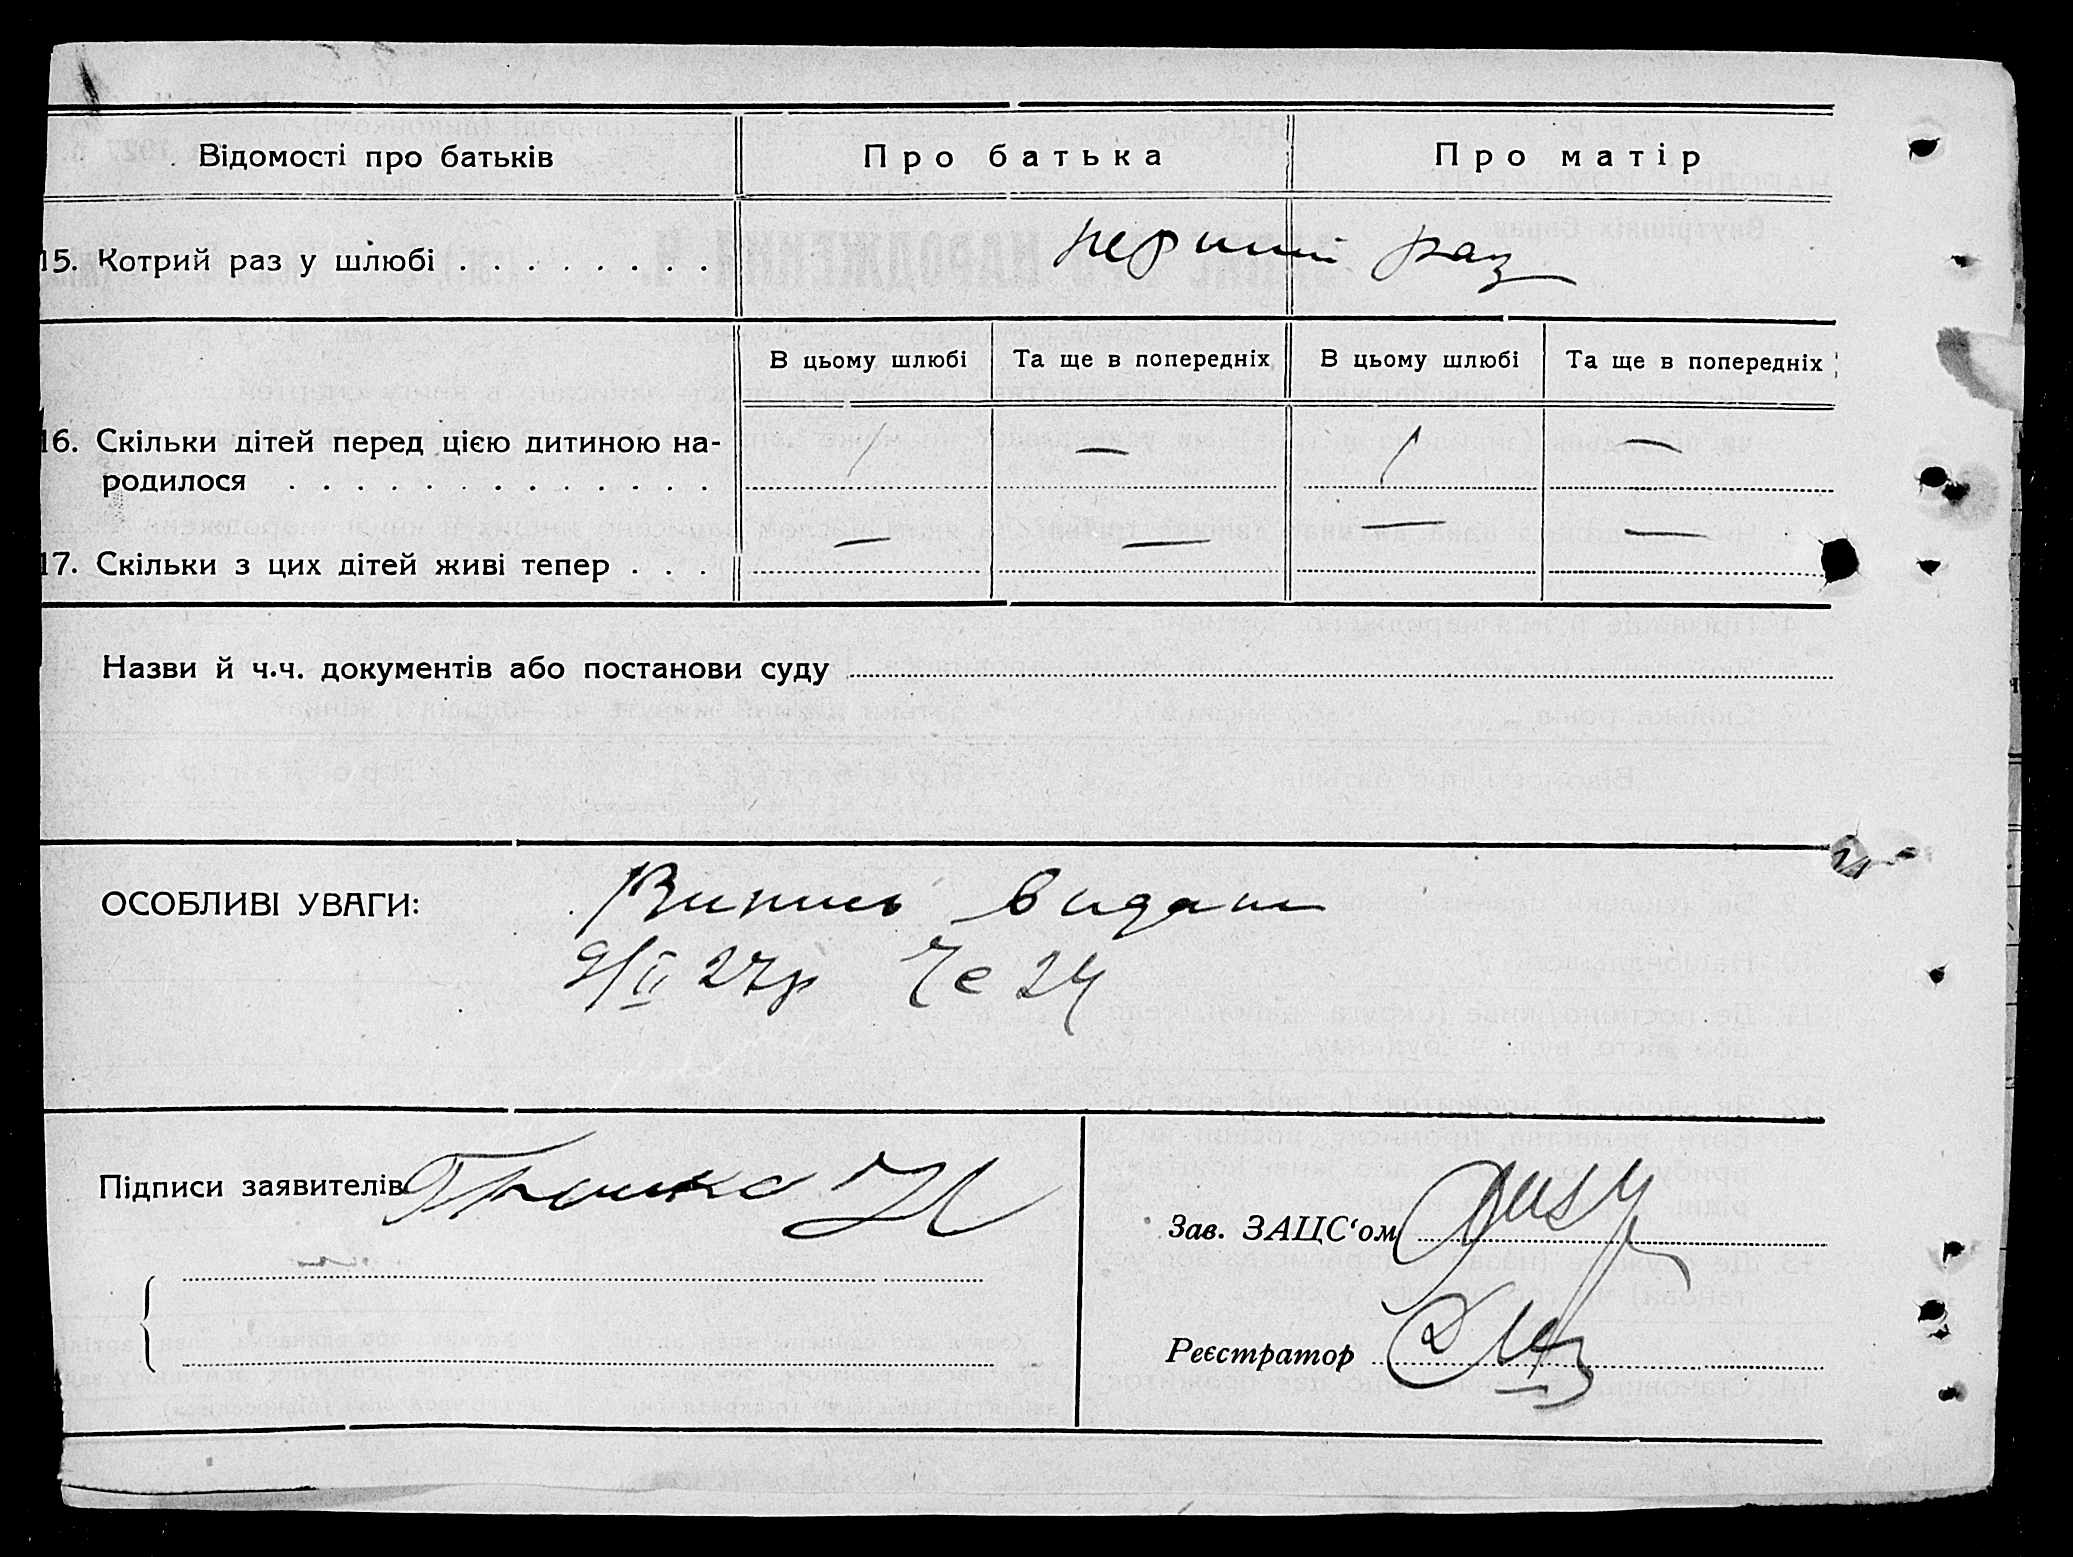 Відомості про батьків Про батька Про матір
15. Котрий раз у шлюбі . . . . . . . . перший раз
В цьому шлюбі Та ще в попередніх В цьому шлюбі Та ще в попередніх
16. Скільки дітей перед цією дитиною на- 1 — 1 —
родилося . . . . . . . . . . . . .
17. Скільки з цих дітей живі тепер . . . — — — —
Назви й ч.ч. документів або постанови суду
ОСОБЛИВІ УВАГИ: Випись видани
9/II 27р Че 24
Підписи заявителів
Зав. ЗАЦС‘ом
Реєстратор